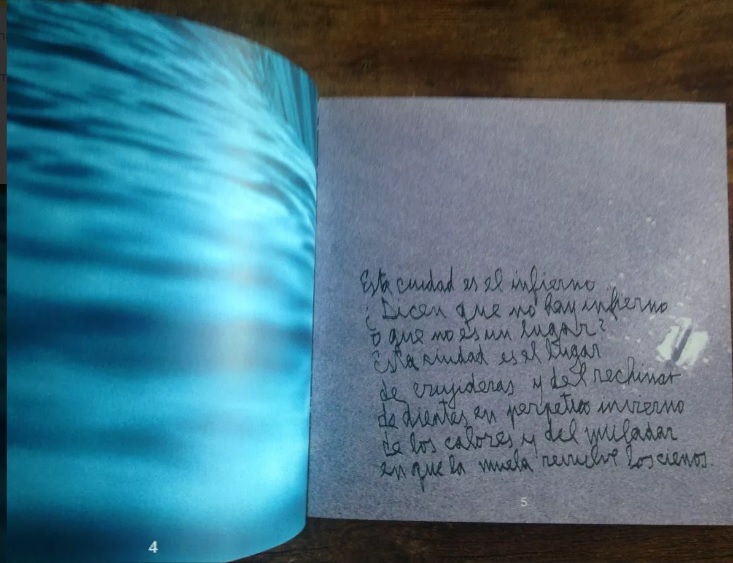 Esta ciudad es el infierno
¿Dicen que no hay infierno
o que no es un lugar?
Esta ciudad es el lugar
de crujideras y del rechinar
de dientes en perpetuo invierno
de los calores y del muladar
en que la muela revuelve los cienos.
4
5